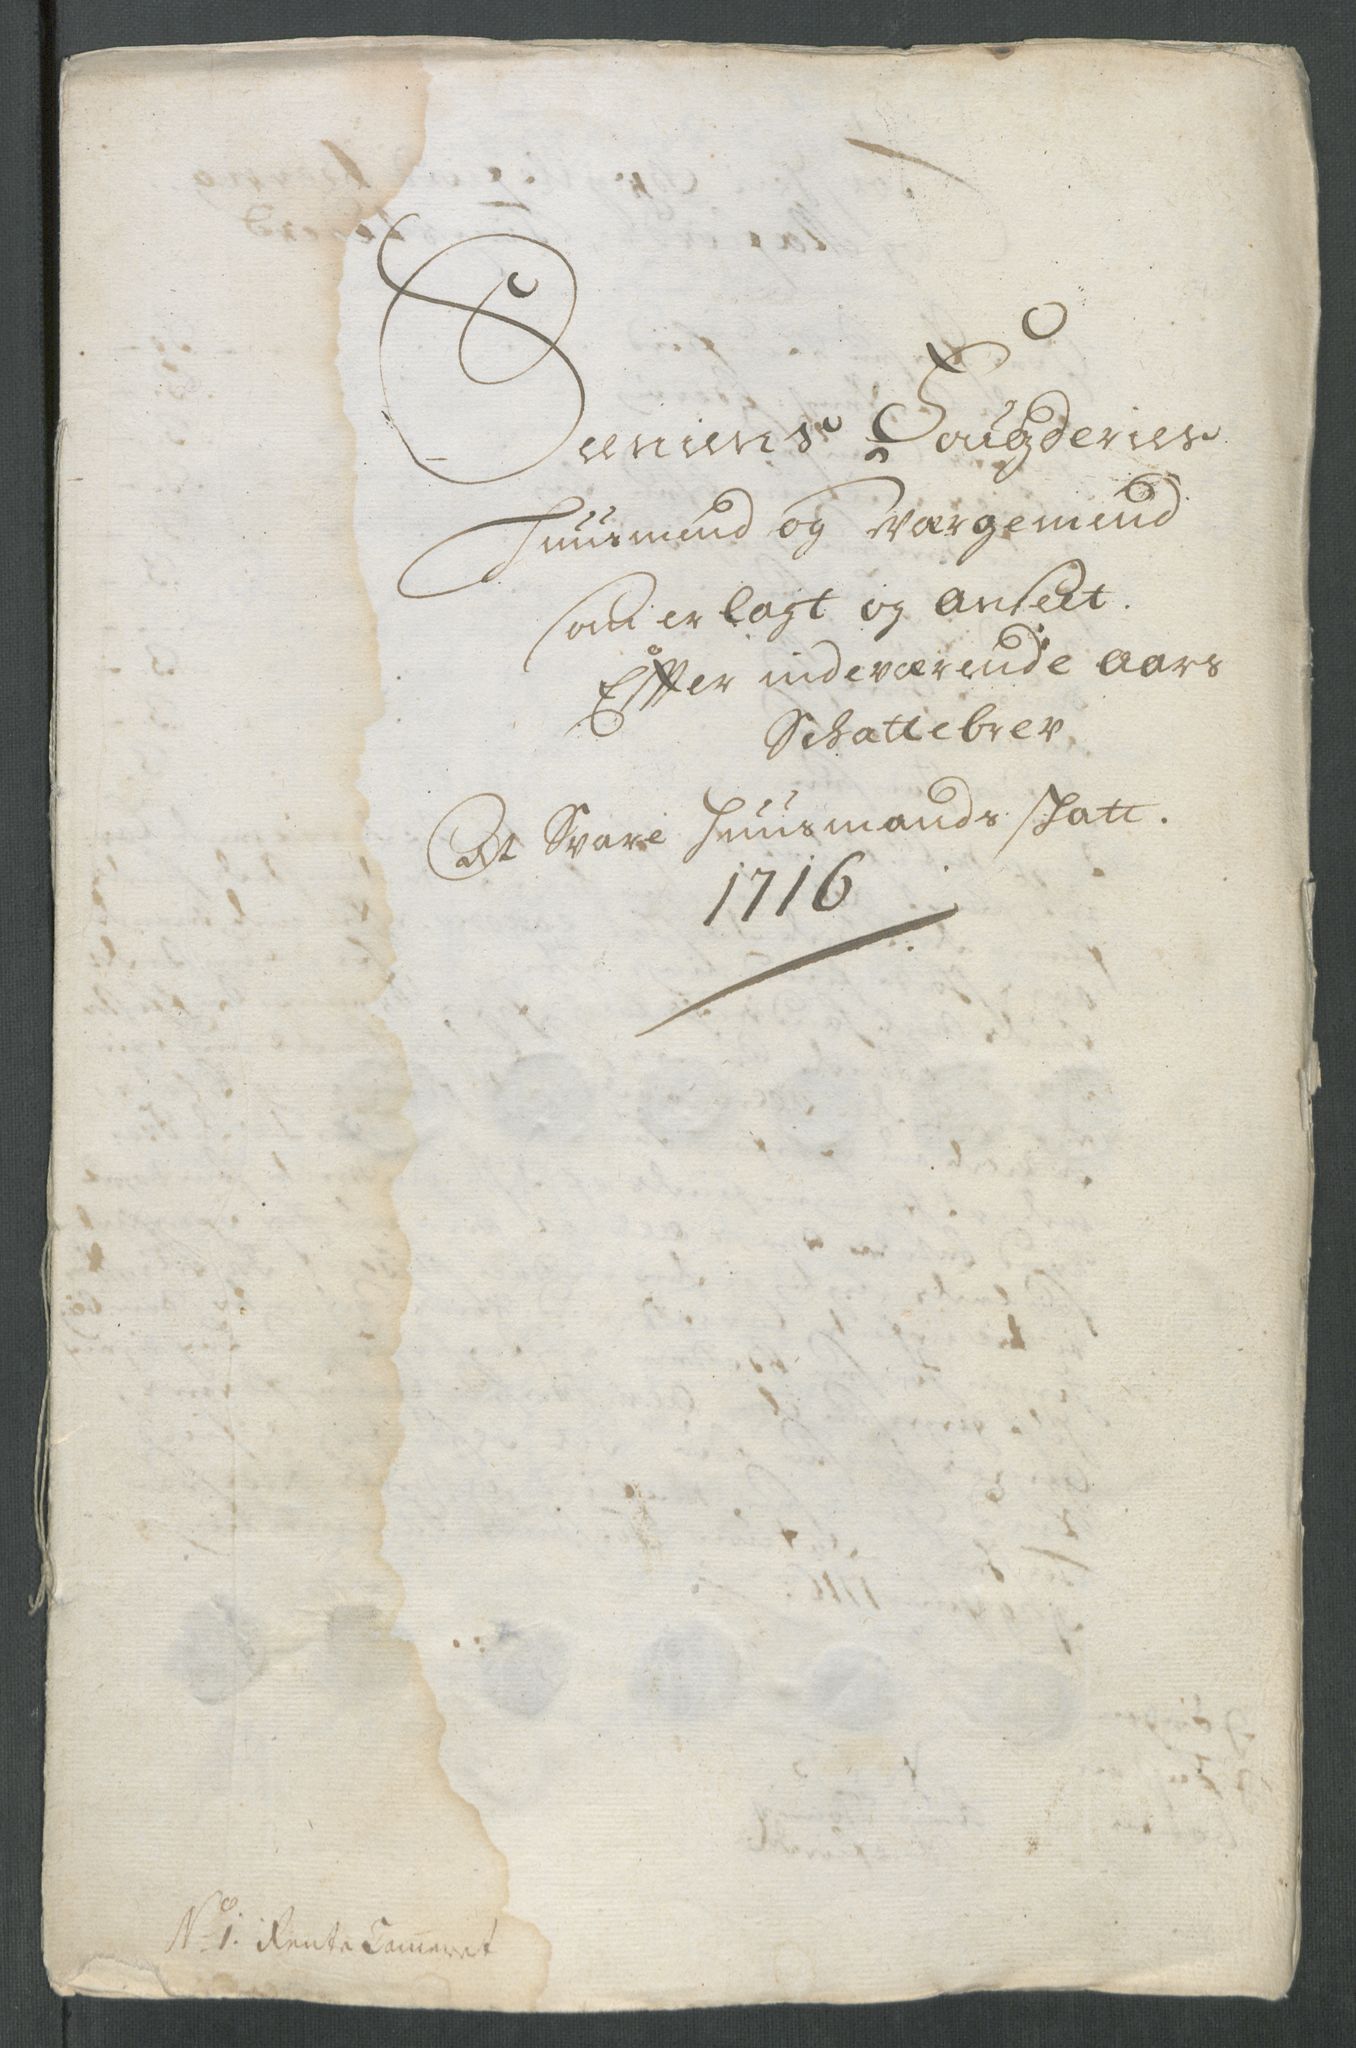 Seniens Fougderies
Huusmend og Værgemend
som er lagt og ansett.
Effter indeværende aars
Schattebrev
At Svare Huusmands skatt.
1716
No 1. Rente Cameret